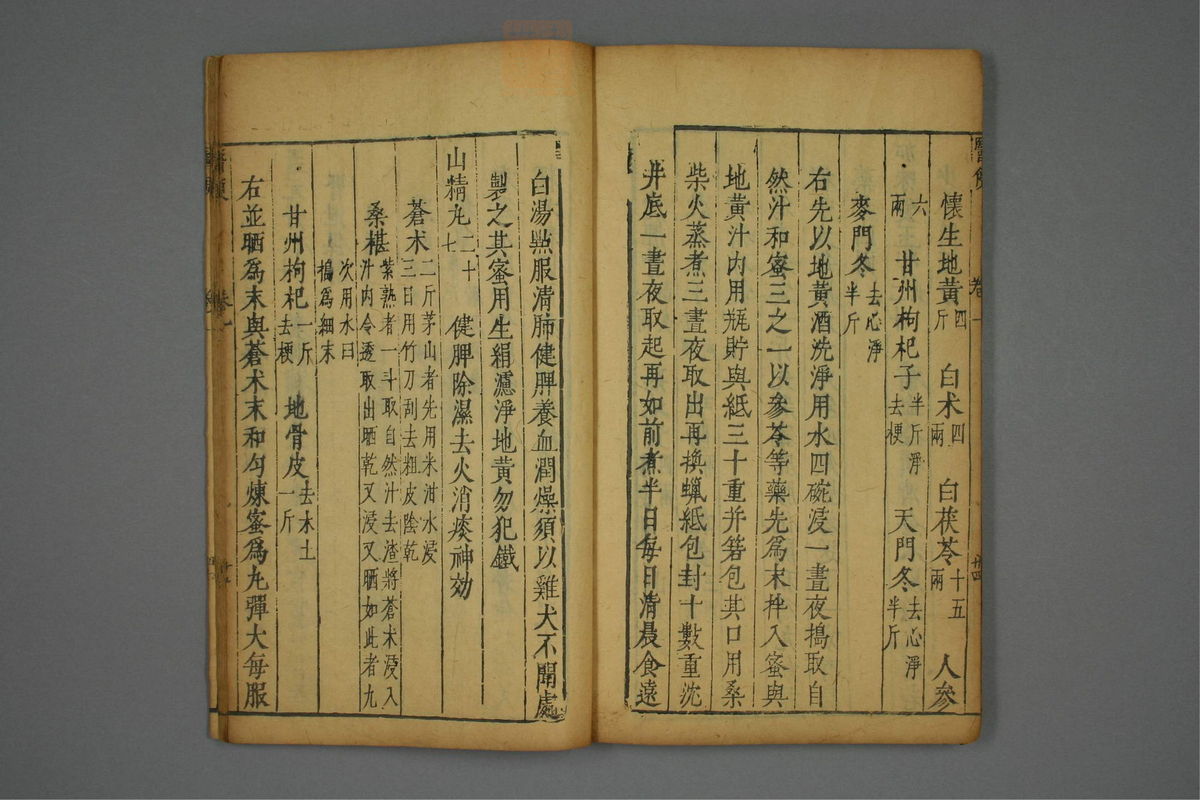 懷生地黃四斤 白术四兩 白茯苓十五兩 人參
六兩 甘州枸杞子半斤淨去梗 天門冬去心淨半斤
麥門冬去心淨半斤
右先以地黃酒洗淨用水四碗浸一晝夜搗取自
然汁和蜜三之一以參苓等藥先爲末拌入蜜與
地黃汁内用瓶貯與紙三十重并箬包其口用桑
柴火蒸煮三晝夜取出再換蠟紙包封十數重沈
井底一晝夜取起再如前煮半日每日清晨食遠
白湯㸃服清肺健脾養血潤燥須以雞犬不聞處
製之其蜜用生絹濾淨地黃勿犯鐵
山精丸二十七 健脾除濕去火消痰神効
蒼术二斤茅山者先用米泔水浸三日用竹刀刮去粗皮陰乾
桑椹紫熟者一斗取自然汁去渣將蒼术浸入汁内令透取出晒乾又浸又晒如此者九
次用水臼搗爲細末
甘州枸杞一斤去梗 地骨皮去木土一斤
右並晒爲末與蒼术末和勻煉蜜爲丸彈大每服